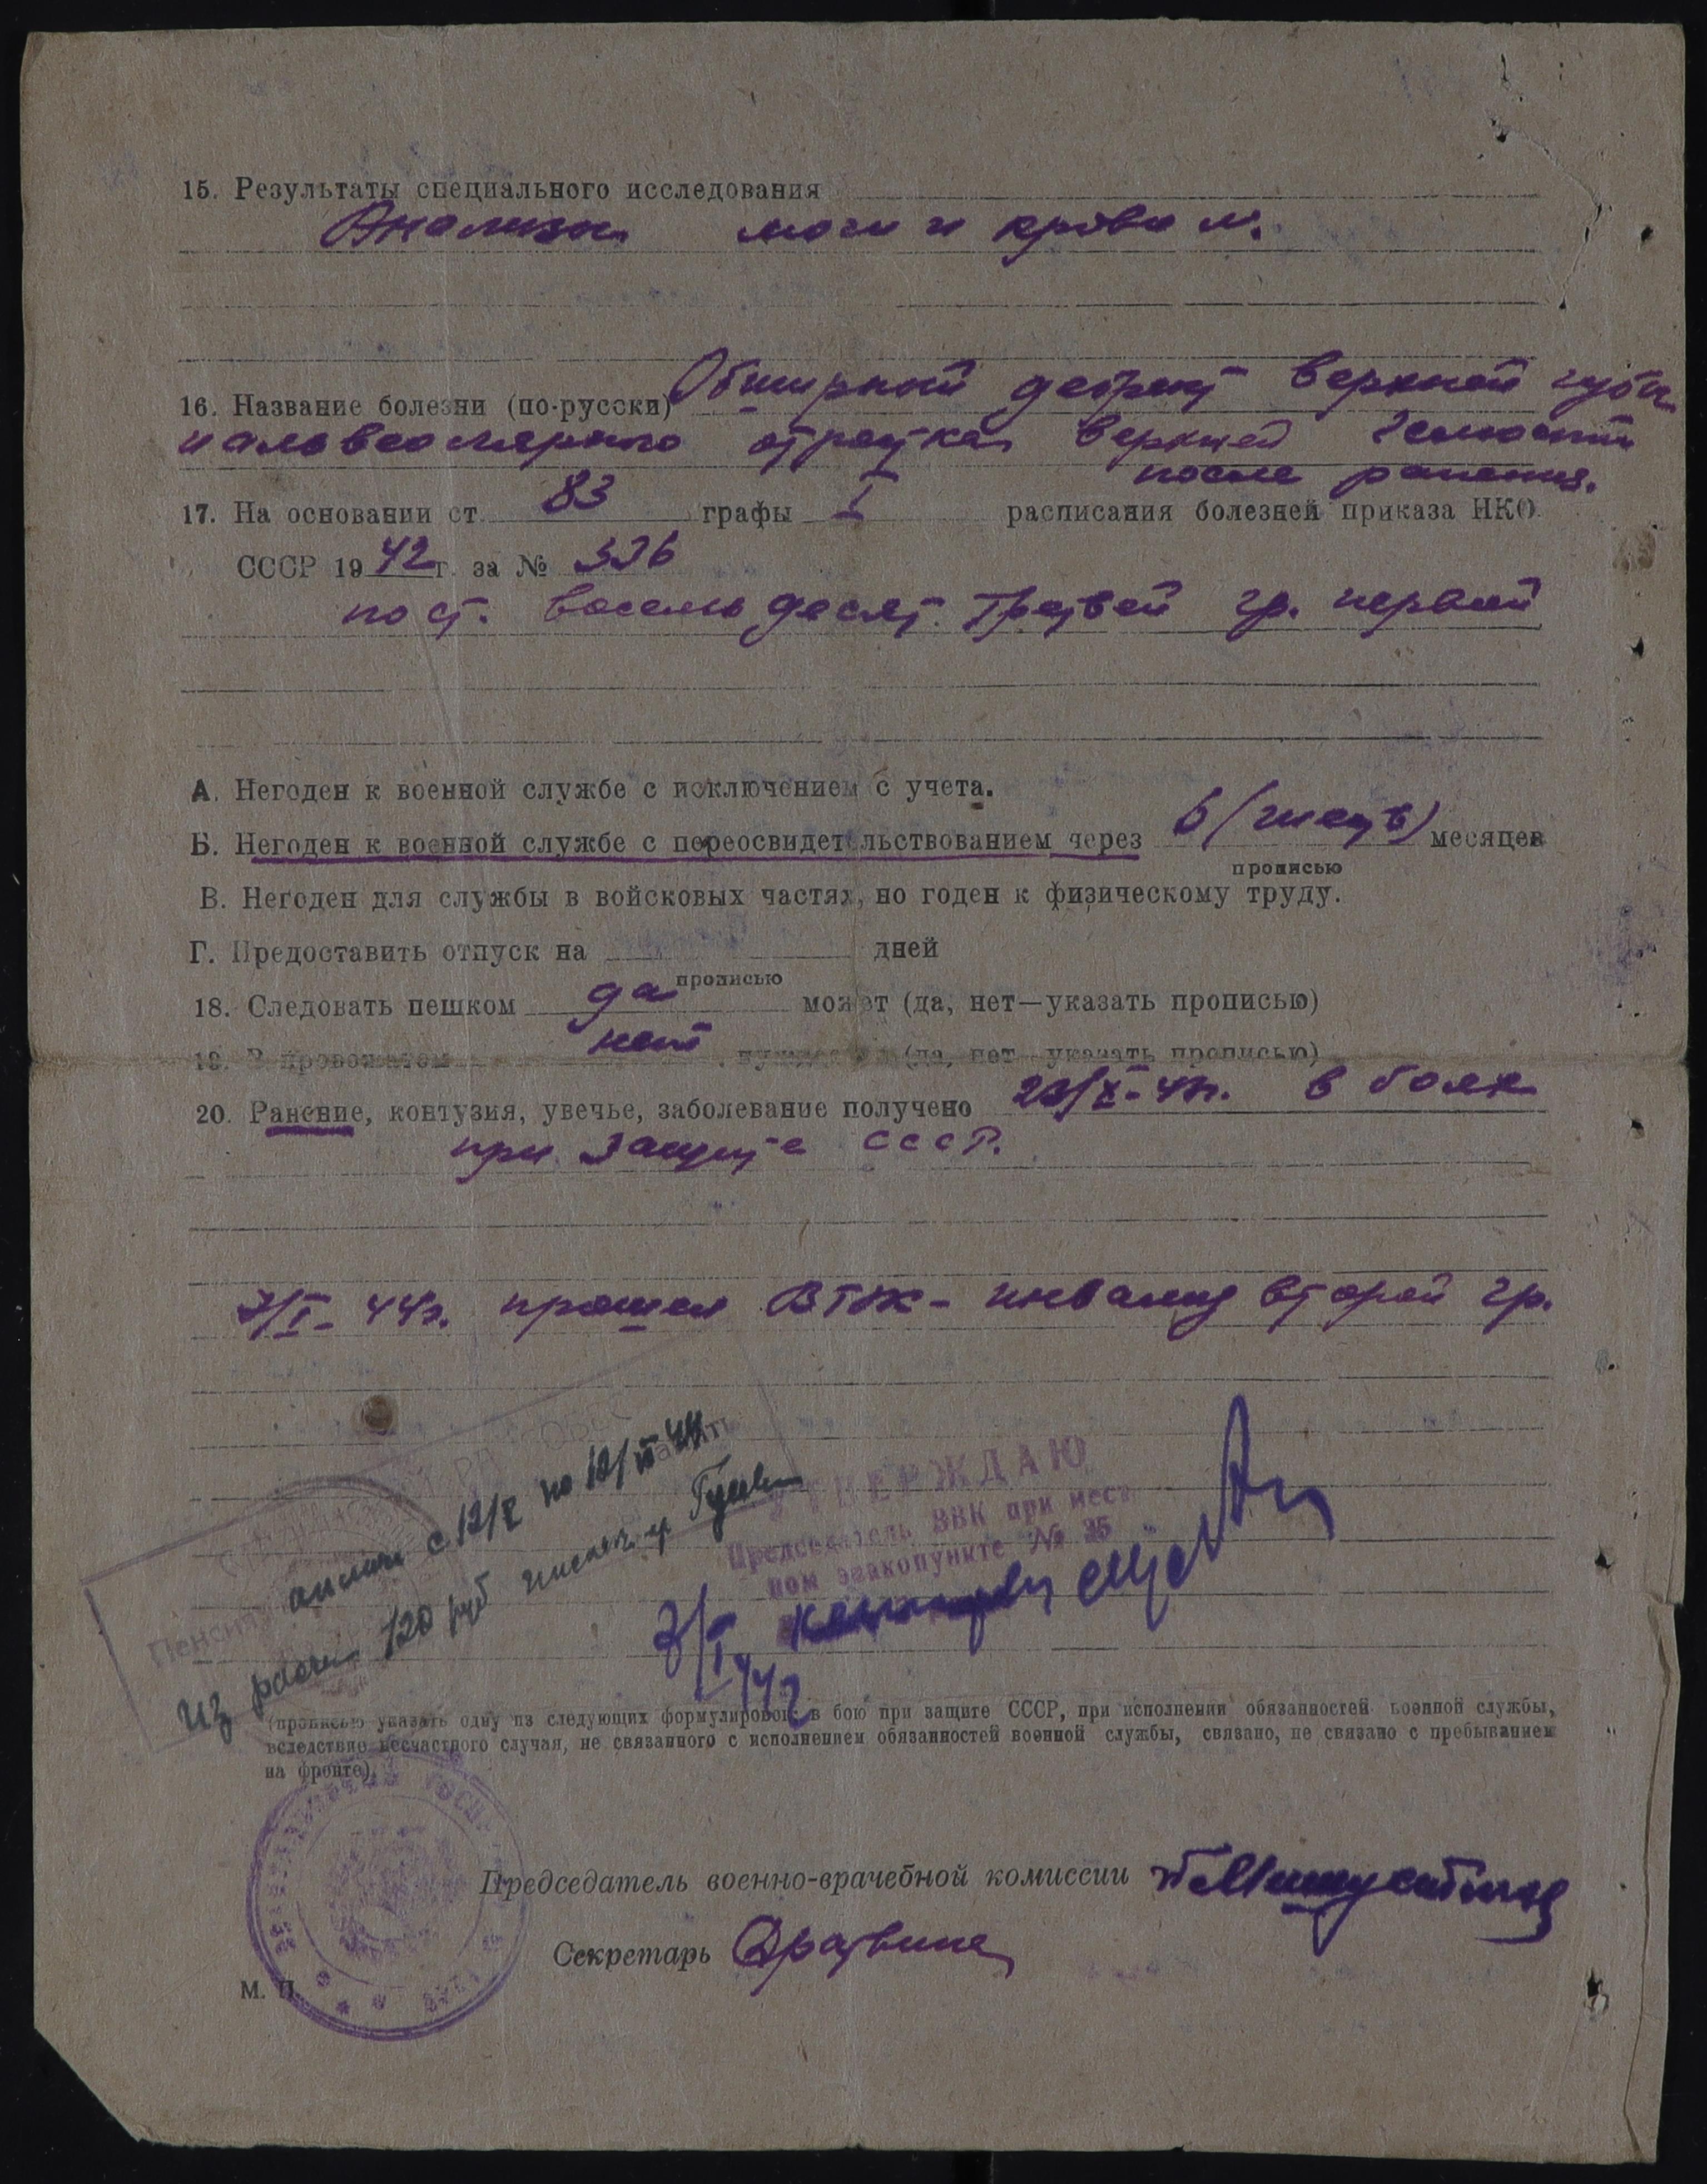 15. Результаты специального исследования
Анализы мочи и крови N.
16. Название болезни (по-русски) Обширный дефект верхней губы
и альвеолярного отростка верхней челюсти
после ранения.
17. На основании ст. 83 графы I расписания болезней приказа НКО
СССР 1942 г. за № 336
по ст. восемьдесят третьей гр. первой
А. Негоден к военной службе с исключением с учета.
Б. Негоден к военной службе с переосвидетельствованием через 6 (шесть) месяцев
прописью
В. Негоден для службы в войсковых частях, но годен к физическому труду.
Г. Предоставить отпуск на дней
прописью
18. Следовать пешком да может (да, нет—указать прописью)
19. В провожатом нет (да, нет—указать прописью)
20. Ранение, контузия, увечье, заболевание получено в боях
при защите СССР.
7/I-44г. прошел ВТЭК - инвалид второй гр.
с 12/I по 12/VII 44
из расчета 120 руб
УТВЕРЖДАЮ
Председатель ВВК при мест
ном эвакопункте № 35
7/I 44г
(прописью указать одну из следующих формулировок: в бою при защите СССР, при исполнении обязанностей военной службы,
вследствие несчастного случая, не связанного с исполнением обязанностей военной службы, связано, не связано с пребыванием
на фронте).
Председатель военно-врачебной комиссии
Секретарь
М. П.